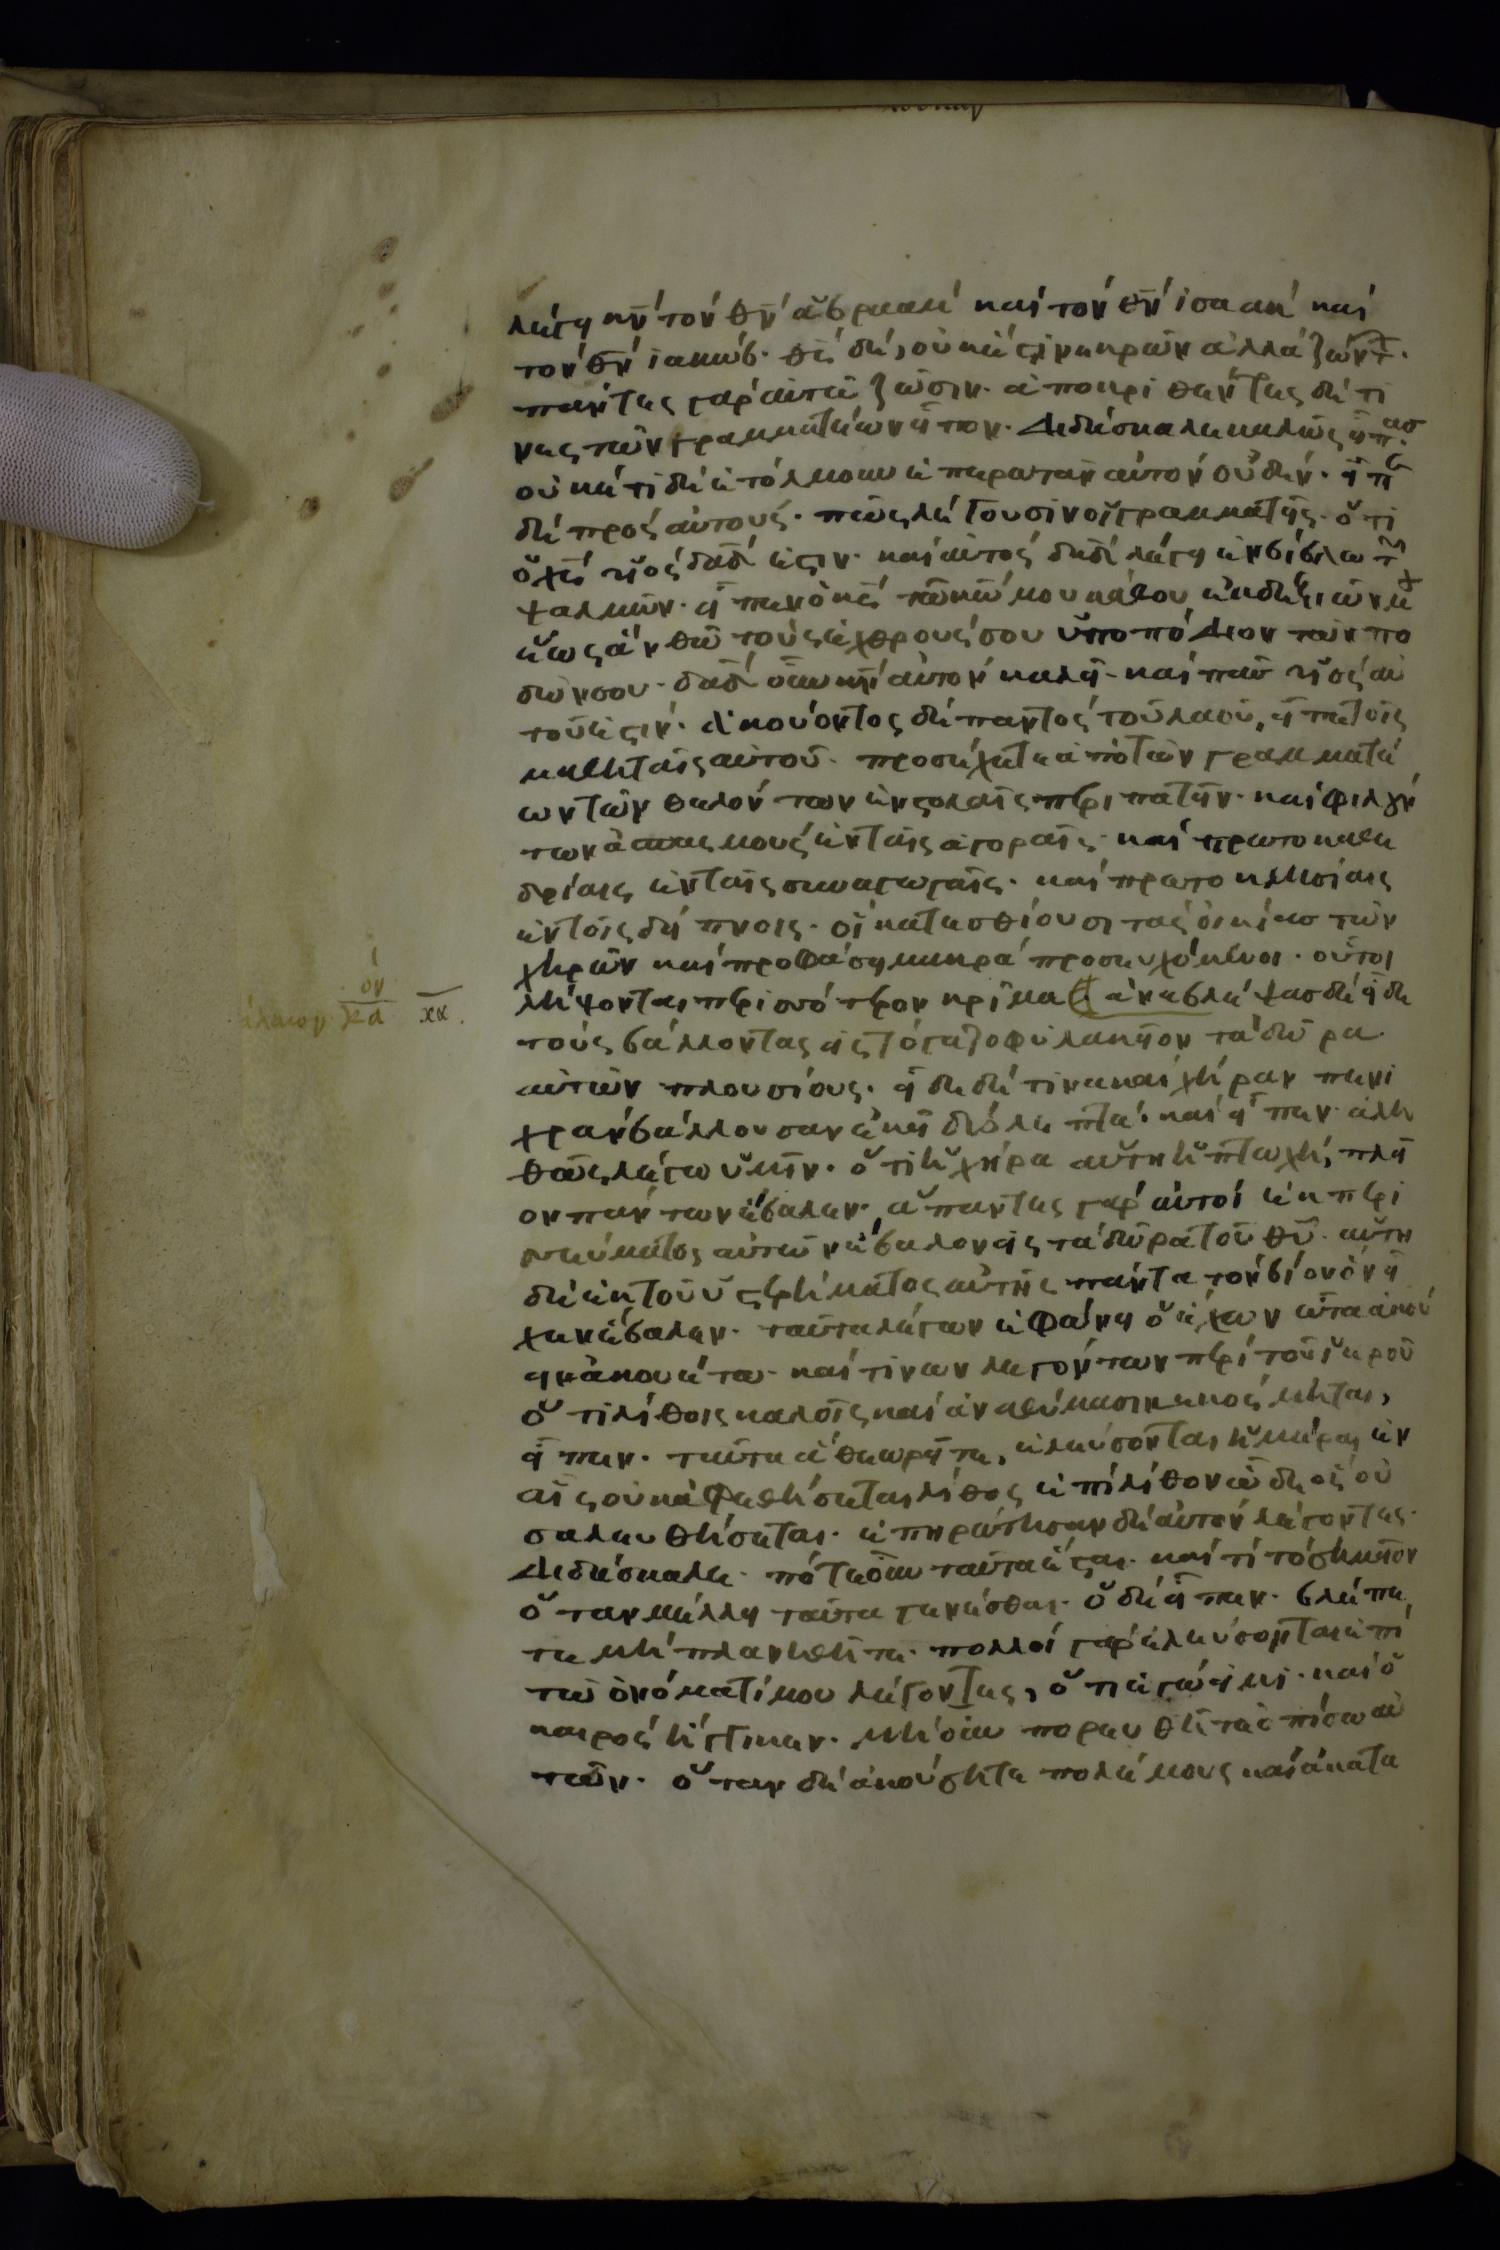 λέγει κν τον θν ἀβρααμ καὶ τον θν ἰσαακ καὶ
τὸν θν ἰακώβ. θς δὲ, οὐκ ἔστιν νεκρῶν ἀλλὰ ζώντ.
πάντες γὰρ αὐτῶ ζῶσιν. ἀποκριθέντες δέ τι
νες τῶν γραμματέων εἶπον. Διδάσκαλε καλῶς εἶπασ.
οὐκέτι δὲ ἐτόλμουν ἐπερωτᾶν αὐτὸν οὐδέν. εἶπε
δὲ πρὸς αὐτούς. πῶς λέγουσιν οἱ γραμματεῖς. ὅτι
ὁ χς υἱὸς δαδ ἐστιν. καὶ αὐτὸς δαδ λέγει ἐν βίβλω τ
ψαλμῶν. εἶπεν ὁ κς τῶ κω μου κάθου ἐκ δεξιῶν μ
ἕως ἂν θῶ τοὺς ἐχθρούς σου ὑποπόδιον τῶν πο
δῶν σου. δαδ οὖν κν αὐτὸν καλεῖ. καὶ πῶς υἱὸς αὐ
τοῦ ἐστιν. Ἀκούοντος δὲ παντὸς τοῦ λαοῦ, εἶπε τοῖς
μαθηταῖς αὐτοῦ. προσέχετε ἀπὸ τῶν γραμματέ
ων τῶν θελόντων ἐν στολαῖς περιπατεῖν. καὶ φιλούν
των ἀσπασμοὺς ἐν ταῖς ἀγοραῖς. καὶ πρωτοκαθε
δρίας ἐν ταῖς συναγωγαῖς. καὶ πρωτοκλησίας
ἐν τοῖς δείπνοις. οἳ κατεσθίουσι τὰς οἰκίασ τῶν
χηρῶν καὶ προφάσει μακρὰ προσευχόμενοι. οὗτοι
λήψονται περισσότερον κρῖμα ἀναβλέψασ δὲ εἶδε
τοὺς βάλλοντας εἰς τὸ γαζοφυλακεῖον τὰ δῶρα
αὐτῶν πλουσίους. εἶδε δέ τινα καὶ χήραν πενι
χρὰν βάλλουσαν ἐκεῖ δύο λεπτά. καὶ εἶπεν. ἀλη
θῶς λέγω ὑμῖν. ὅτι ἡ χήρα αὕτη ἡ πτωχὴ, πλεῖ
ον πάντων ἔβαλεν. ἅπαντες γὰρ αὐτοὶ ἐκ περι
σσεύματος αὐτῶν ἔβαλον εἰς τὰ δῶρα τοῦ θυ. αὕτη
δὲ ἐκ τοῦ ὑστερήματος αὐτῆς πάντα τὸν βίον ὃν εἶ
χεν ἔβαλεν. ταῦτα λέγων ἐφώνει ὁ ἔχων ὦτα ἀκού
ειν ἀκουέτω. καί τινων λεγόντων περὶ τοῦ ἱεροῦ
ὅτι λίθοις καλοῖς καὶ ἀναθέμασιν κεκόσμηται,
εἶπεν. ταῦτα ἃ θεωρεῖτε, ἐλεύσονται ἡμέραι ἐν
αἷς οὐκ ἀφεθήσεται λίθος ἐπὶ λίθον ὧδε ὃς οὐ
σαλευθήσεται. ἐπηρώτησαν δὲ αὐτὸν λέγοντες.
Διδάσκαλε. πότε οὖν ταῦτα ἔσται. καὶ τί τὸ σημεῖον
ὅταν μέλλη ταῦτα γενέσθαι. ὁ δὲ εἶπεν. βλέπε
τε μὴ πλανηθῆτε. πολλοὶ γὰρ ἐλεύσονται ἐπὶ
τῶ ὀνόματί μου λέγοντες, ὅτι ἐγώ εἰμι. καὶ ὁ
καιρὸς ἤγγικεν. μὴ οὖν πορευθῆτε ὀπίσω αὐ
τῶν. ὅταν δὲ ἀκούσητε πολέμους καὶ ἀκατα